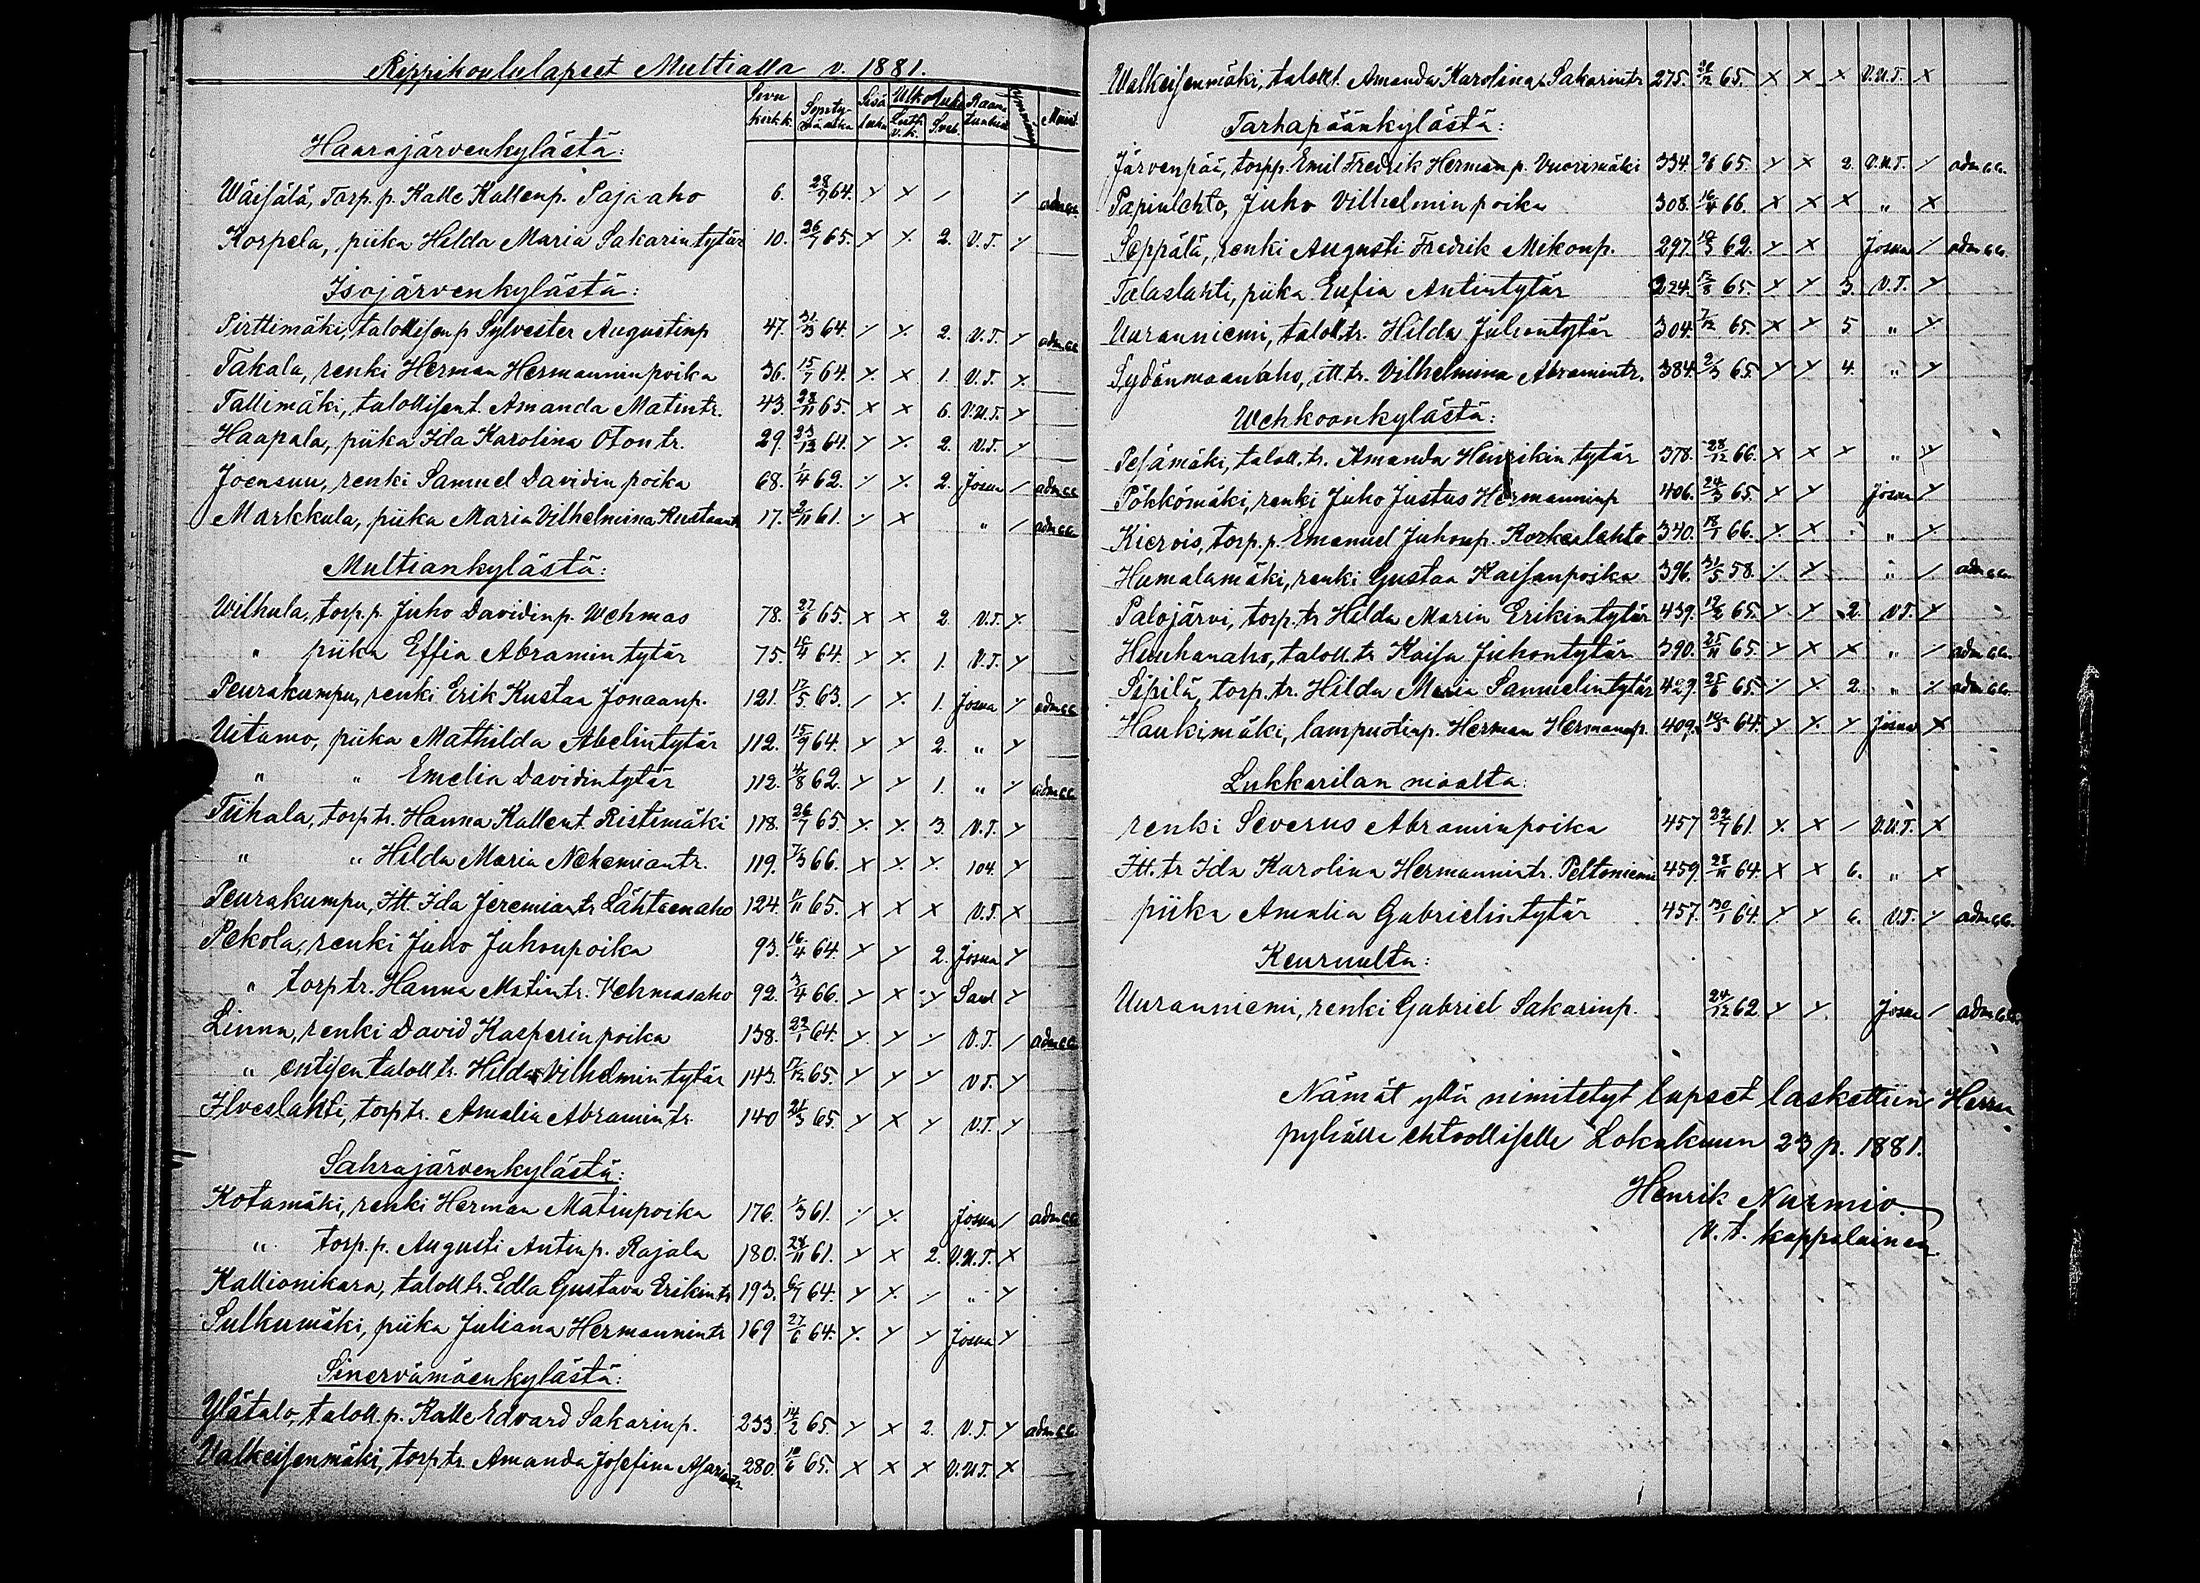 Rippikoululapset Multialla v. 1881.
Sivu kirkk. Synty- Sisä luku Ulkoluku Sveb. Raam. tuntem. Muist.
Haarajärvenkylästä:
Wäisälä, Torp. p. Kalle Kallenp. Sajaaho 6. 28/9 64. x x / / adm. cc.
Korpela, piika Hilda Maria Sakarintytär 10. 26/7 65. x x. 2. V.T. x
Isojärvenkylästä:
Pirttimäki, talollisen p. Sylvester Augustinp 47. 31/3 64. x x. 2. V.T. x adm. cc.
Takala, renki Herman Hermanninpoika 36. 15/7 64. x. x 1. V.T. x.
Tallimäki, talollisen t. Amanda Matintr. 43. 28/11 65. x x 6. V.U.T. x
Haapala, piika Ida Karolina Otontr. 29. 23/12 64. x x. 2. V.T. x
Joensuu, renki Samuel Davidinpoika 68. 1/4 62. x x. 2. Josua / adm. cc.
Markkula, piika Maria Vilhelmina Kustaantr 17. 2/11 61. x x " / adm. cc.
Multiankylästä:
Wilhula, torp. p. Juho Davidinp. Wehmas 78. 27/6 65. x x 2. V.T. x.
" piika Effia Abramintytär 75. 18/4 64. x x. 1. V.T. x
Peurakumpu, renki Erik Kustaa Jonaanp. 121. 17/5 63. / x. 1. Josua x adm. cc.
Uitamo, piika Mathilda Abelintytär 112. 15/9 64. x x 2. " x
" " Emelia Davidintytär 112. 4/8 62. x x 1. " x adm. cc.
Tiihala, torp tr. Hanna Kallent. Ristimäki 118. 26/7 65. x. x. 3. V.T. x
" " Hilda Maria Nehemiantr. 119. 7/3 66. x x. x. 104. x
Peurakumpu, Itt. Ida Jeremiantr Lähteenaho 124. 11/11 65. x x x V.T. x
Pekola, renki Juho Juhonpoika 93. 16/4 64. x x 2. Josua x
" torp tr. Hanna Matintr. Vehmasaho 92. 3/4 66. x x x Saul x
Linna, renki David Kasperinpoika 138. 22/1 64. x x x V.T. / adm. cc.
" entisen taloll tr. Hilda Vilhelmintytär 143. 17/12 65. x x x V.T. x
Ilveslahti, torp tr. Amalia Abramintr. 140 21/3 65. x x x V.T. x
Sahrajärvenkylästä:
Kotamäki, renki Herman Matinpoika 176. 1/3 61. x x. Josua / adm. cc.
" torp. p. Augusti Antinp. Rajala 180. 24/11 61. x x 2. V.U.T. x
Kallionikara, taloll tr. Edla Gustava Erikintr 193. 6/7 64. x x. x " x
Sulkumäki, piika Juliana Hermannintr 169 27/6 64. x. x x Josua x
Sinervämäenkylästä:
Ylätalo, taloll. p. Kalle Edvard Sakarinp. 233. 14/2 65. x x 2. V.T. x adm. cc.
Valkeisenmäki, torp tr. Amanda Josefina 280. 10/6 65. x x x V.U.T. x
Walkeisenmäki, taloll t. Amanda Karolina Sakarintr 275. 26/12 65. x x x V.U.T. x
Tarhapäänkylästä:
Järvenpää, torpp. Emil Fredrik Herman p. Vuorimäki 334. 9/6 65. x x 2. V.U.T. / adm. cc.
Papinlehto, Juho Vilhelminpoika 308. 16/4 66. x x x " x
Seppälä, renki Augusti Fredrik Mikonp. 297. 10/3 62. x. x Josua / adm. cc.
Talaslahti, piika Eufia Antintytär 224. 15/8 65. x x 3. V.T. x
Uuranniemi, taloll. tr. Hilda Juhontytär 304. 7/12 65. x x 5 " x
Sydänmaanaho, itt. tr. Vilhelmina Abramintr. 384. 2/3 65. x x 4. " x
Wehkoonkylästä:
Pesämäki, taloll. tr. Amanda Henrikintytär 378. 28/12 66. x x x " x
Pökkömäki, renki Juho Justus Hermanninp 406. 24/3 65. x x Josua x
Kiervis, torp. p. Emanuel Juhonp. Korkealehto 340. 18/1 66. x. x " x
Humalamäki, renki Gustaa Kaisanpoika 396. 31/5 58. x x " / adm. cc.
Palojärvi, torp. tr. Hilda Maria Erikintytär 439. 19/2 65. x x 2. V.T. x
Huuhanaho, taloll. tr. Kaisa Juhontytär 390. 25/11 65. x x x " / adm. cc.
Sipilä, torp. tr. Hilda Maria Samuelintytär 429. 25/6 65. x x 2. " x adm. cc.
Haukimäki, lampuotinp. Herman Hermanp. 409. 64. x x. x Josua x
Lukkarilan maalta:
renki Severus Abraminpoika 457 22/7 61. x. x / V.U.T. x
Itt. tr Ida Karolina Hermannintr. Peltoniemi 459. 28/11 64. x x 6. " x
piika Amalia Gabrielintytär 457. 30/1 64. x x 6. V.T. x adm. cc.
Keuruulta:
Uuranniemi, renki Gabriel Sakarinp. 24/12 62 x x. Josua / adm. cc.
Nämät yllä nimitetyt lapset laskettiin Herran
pyhälle ehtoolliselle Lokakuun 23 p. 1881.
Henrik Nurmio
v. t. kappalainen.